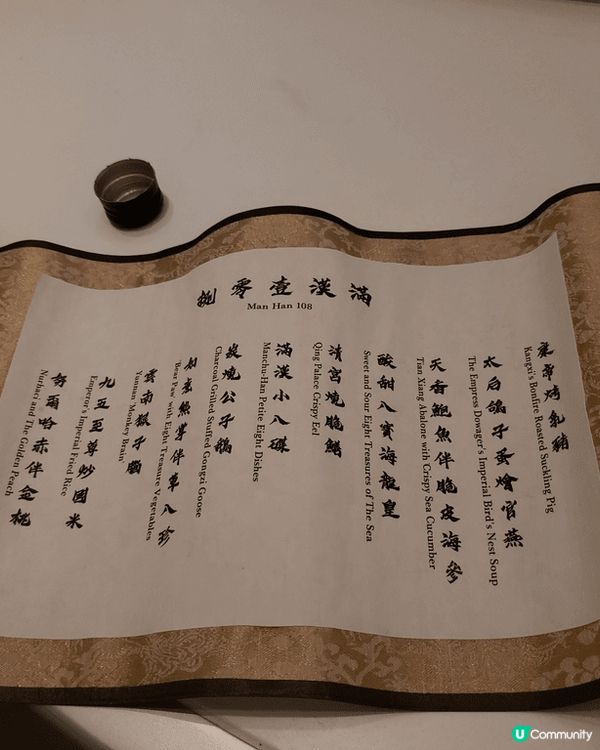 滿漢壹零捌
Man Han 108
帝烤乳豬
Kangxi's Bonfire Roasted Suckling Pig
太后鴿子蛋燴官燕
The Empress Dowager's Imperial Bird's Nest Soup
天香鮑魚伴脆皮海參
Tian Xiang Abalone with Crispy Sea Cucumber
酸甜八寶海龍皇
Sweet and Sour Eight Treasures of The Sea
清宮燒脆鱔
Qing Palace Crispy Eel
滿漢小八碟
Manchu Han Petite Eight Dishes
炭燒公子鵝
Charcoal Grilled Stuffed Gongzi Goose
熊掌伴草八珍
'Bear Paw' with Eight Treasure Vegetables
雲南猴子腦
Yunnan 'Monkey Brain'
九五至尊炒國米
Emperor's Imperial Fried Rice
努爾哈赤伴金桃
Nurhaci and The Golden Peach
U Community